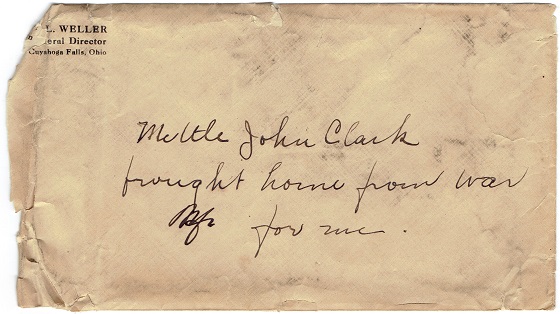 L. WELLER
eral Director
Cuyahoga Falls, Ohio
Mettle John Clark
brought home from war
for me.